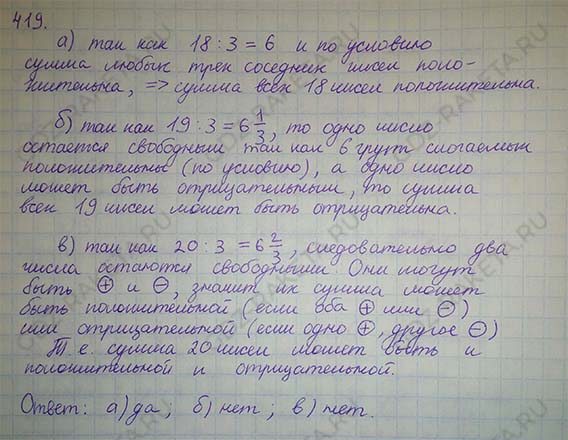 419.
а) так как 18 : 3 = 6 и по условию
сумма любых трех соседних чисел поло-
жительна, => сумма всех 18 чисел положительна.
б) так как 19 : 3 = 6 1/3, то одно число
остается свободным так как 6 групп слагаемых
положительные (по условию), а одно число
может быть отрицательным, то сумма
всех 19 чисел может быть отрицательна.
в) так как 20 : 3 = 6 2/3, следовательно два
числа остаются свободными. Они могут
быть ⊕ и ⊖, значит их сумма может
быть положительной (если оба ⊕ или ⊖)
или отрицательной (если одно ⊕, другое ⊖)
Т.е. сумма 20 чисел может быть и
положительной и отрицательной.
Ответ: а) да; б) нет; в) нет.
GDZ-RAKETA.RU